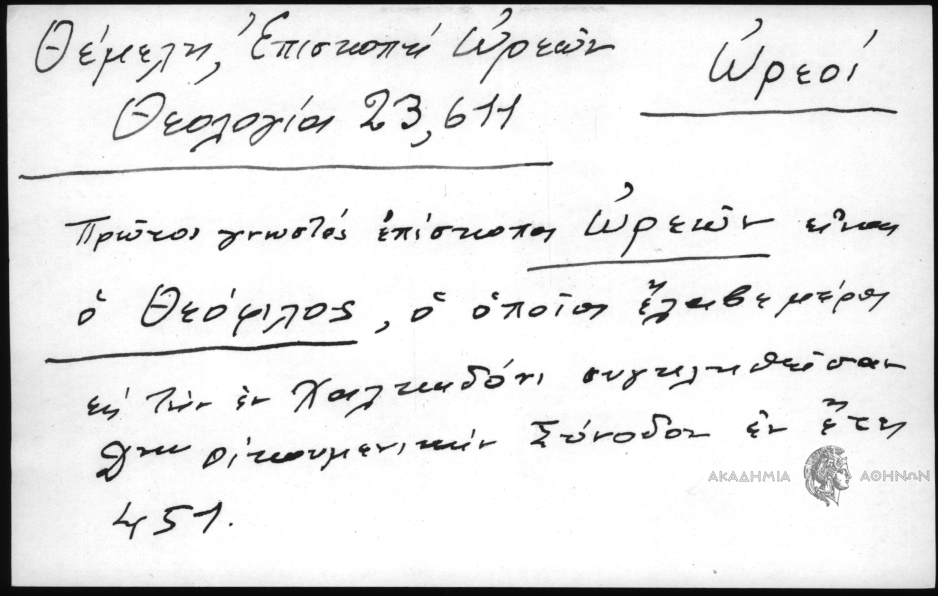 Θέμελη, Ἐπισκοπή Ὠρεῶν
Ὠρεοί
Θεολογία 23, 611
Πρῶτος γνωστός ἐπίσκοπος Ὠρεῶν εἶναι
ὁ Θεόφιλος, ὁ ὁποῖος ἔλαβε μέρος
εἰς τὴν ἐν Χαλκηδόνι συγκληθεῖσαν
Δην οἰκουμενικήν Σύνοδον ἐν ἔτει
451.
ΑΚΑΔΗΜΙΑ ΑΘΗΝΩΝ